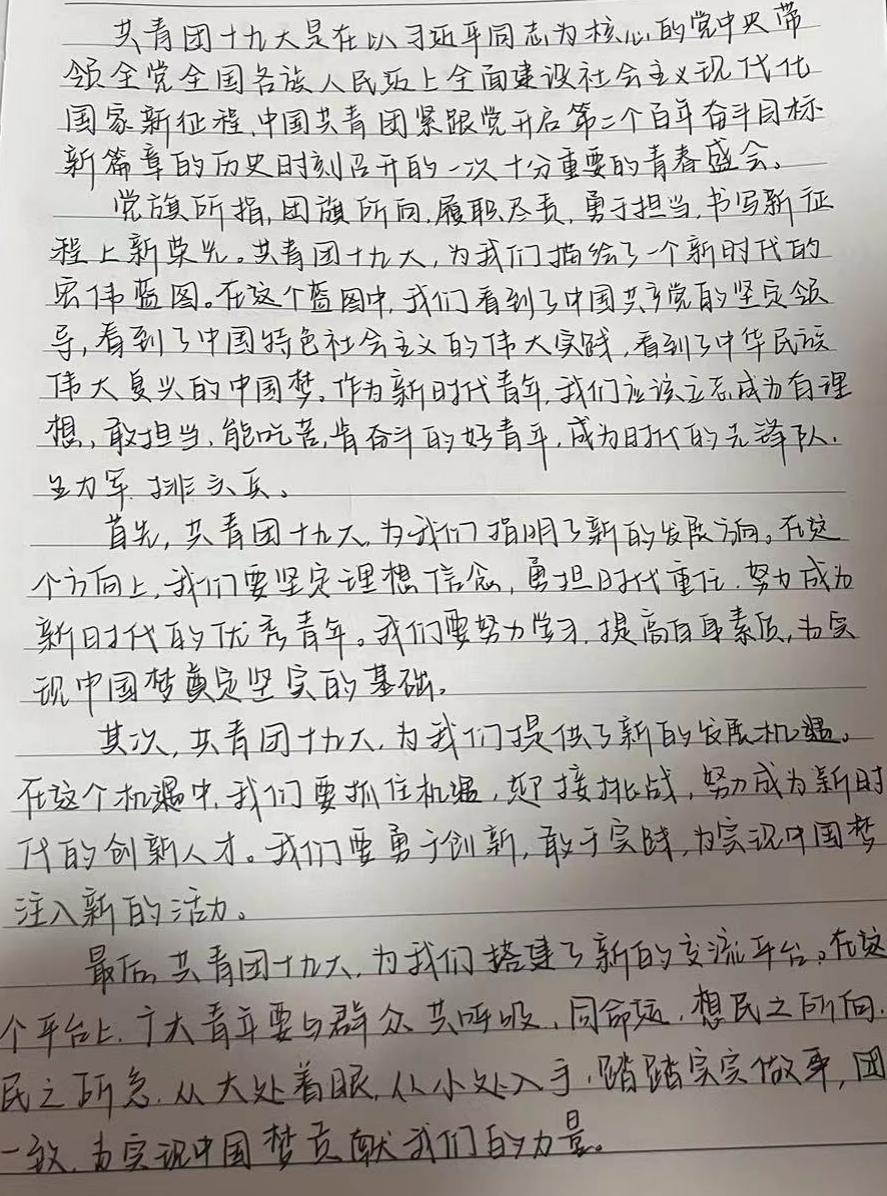 共青团十九大是在以习近平同志为核心的党中央带
领全党全国各族人民迈上全面建设社会主义现代化
国家新征程,中国共青团紧跟党开启第二个百年奋斗目标
新篇章的历史时刻召开的一次十分重要的青春盛会。
党旗所指,团旗所向,履职尽责,勇于担当,书写新征
程上新荣光。共青团十九大,为我们描绘了一个新时代的
宏伟蓝图。在这个蓝图中,我们看到了中国共产党的坚定领
导,看到了中国特色社会主义的伟大实践,看到了中华民族
伟大复兴的中国梦。作为新时代青年,我们应该立志成为有理
想,敢担当,能吃苦,肯奋斗的好青年,成为时代的先锋队.
主力军.排头兵。
首先,共青团十九大,为我们指明了新的发展方向。在这
个方向上,我们要坚定理想信念,勇担时代重任.努力成为
新时代的优秀青年。我们要努力学习.提高自身素质,为实
现中国梦奠定坚实的基础。
其次,共青团十九大,为我们提供了新的发展机遇。
在这个机遇中,我们要抓住机遇,迎接挑战,努力成为新时
代的创新人才。我们要勇于创新,敢于实践,为实现中国梦
注入新的活力。
最后,共青团十九大,为我们搭建了新的交流平台。在这
个平台上,广大青年要与群众共呼吸、同命运.想民之所向.
民之所急.从大处着眼,从小处入手.踏踏实实做事,团
一致.为实现中国梦贡献我们的力量。